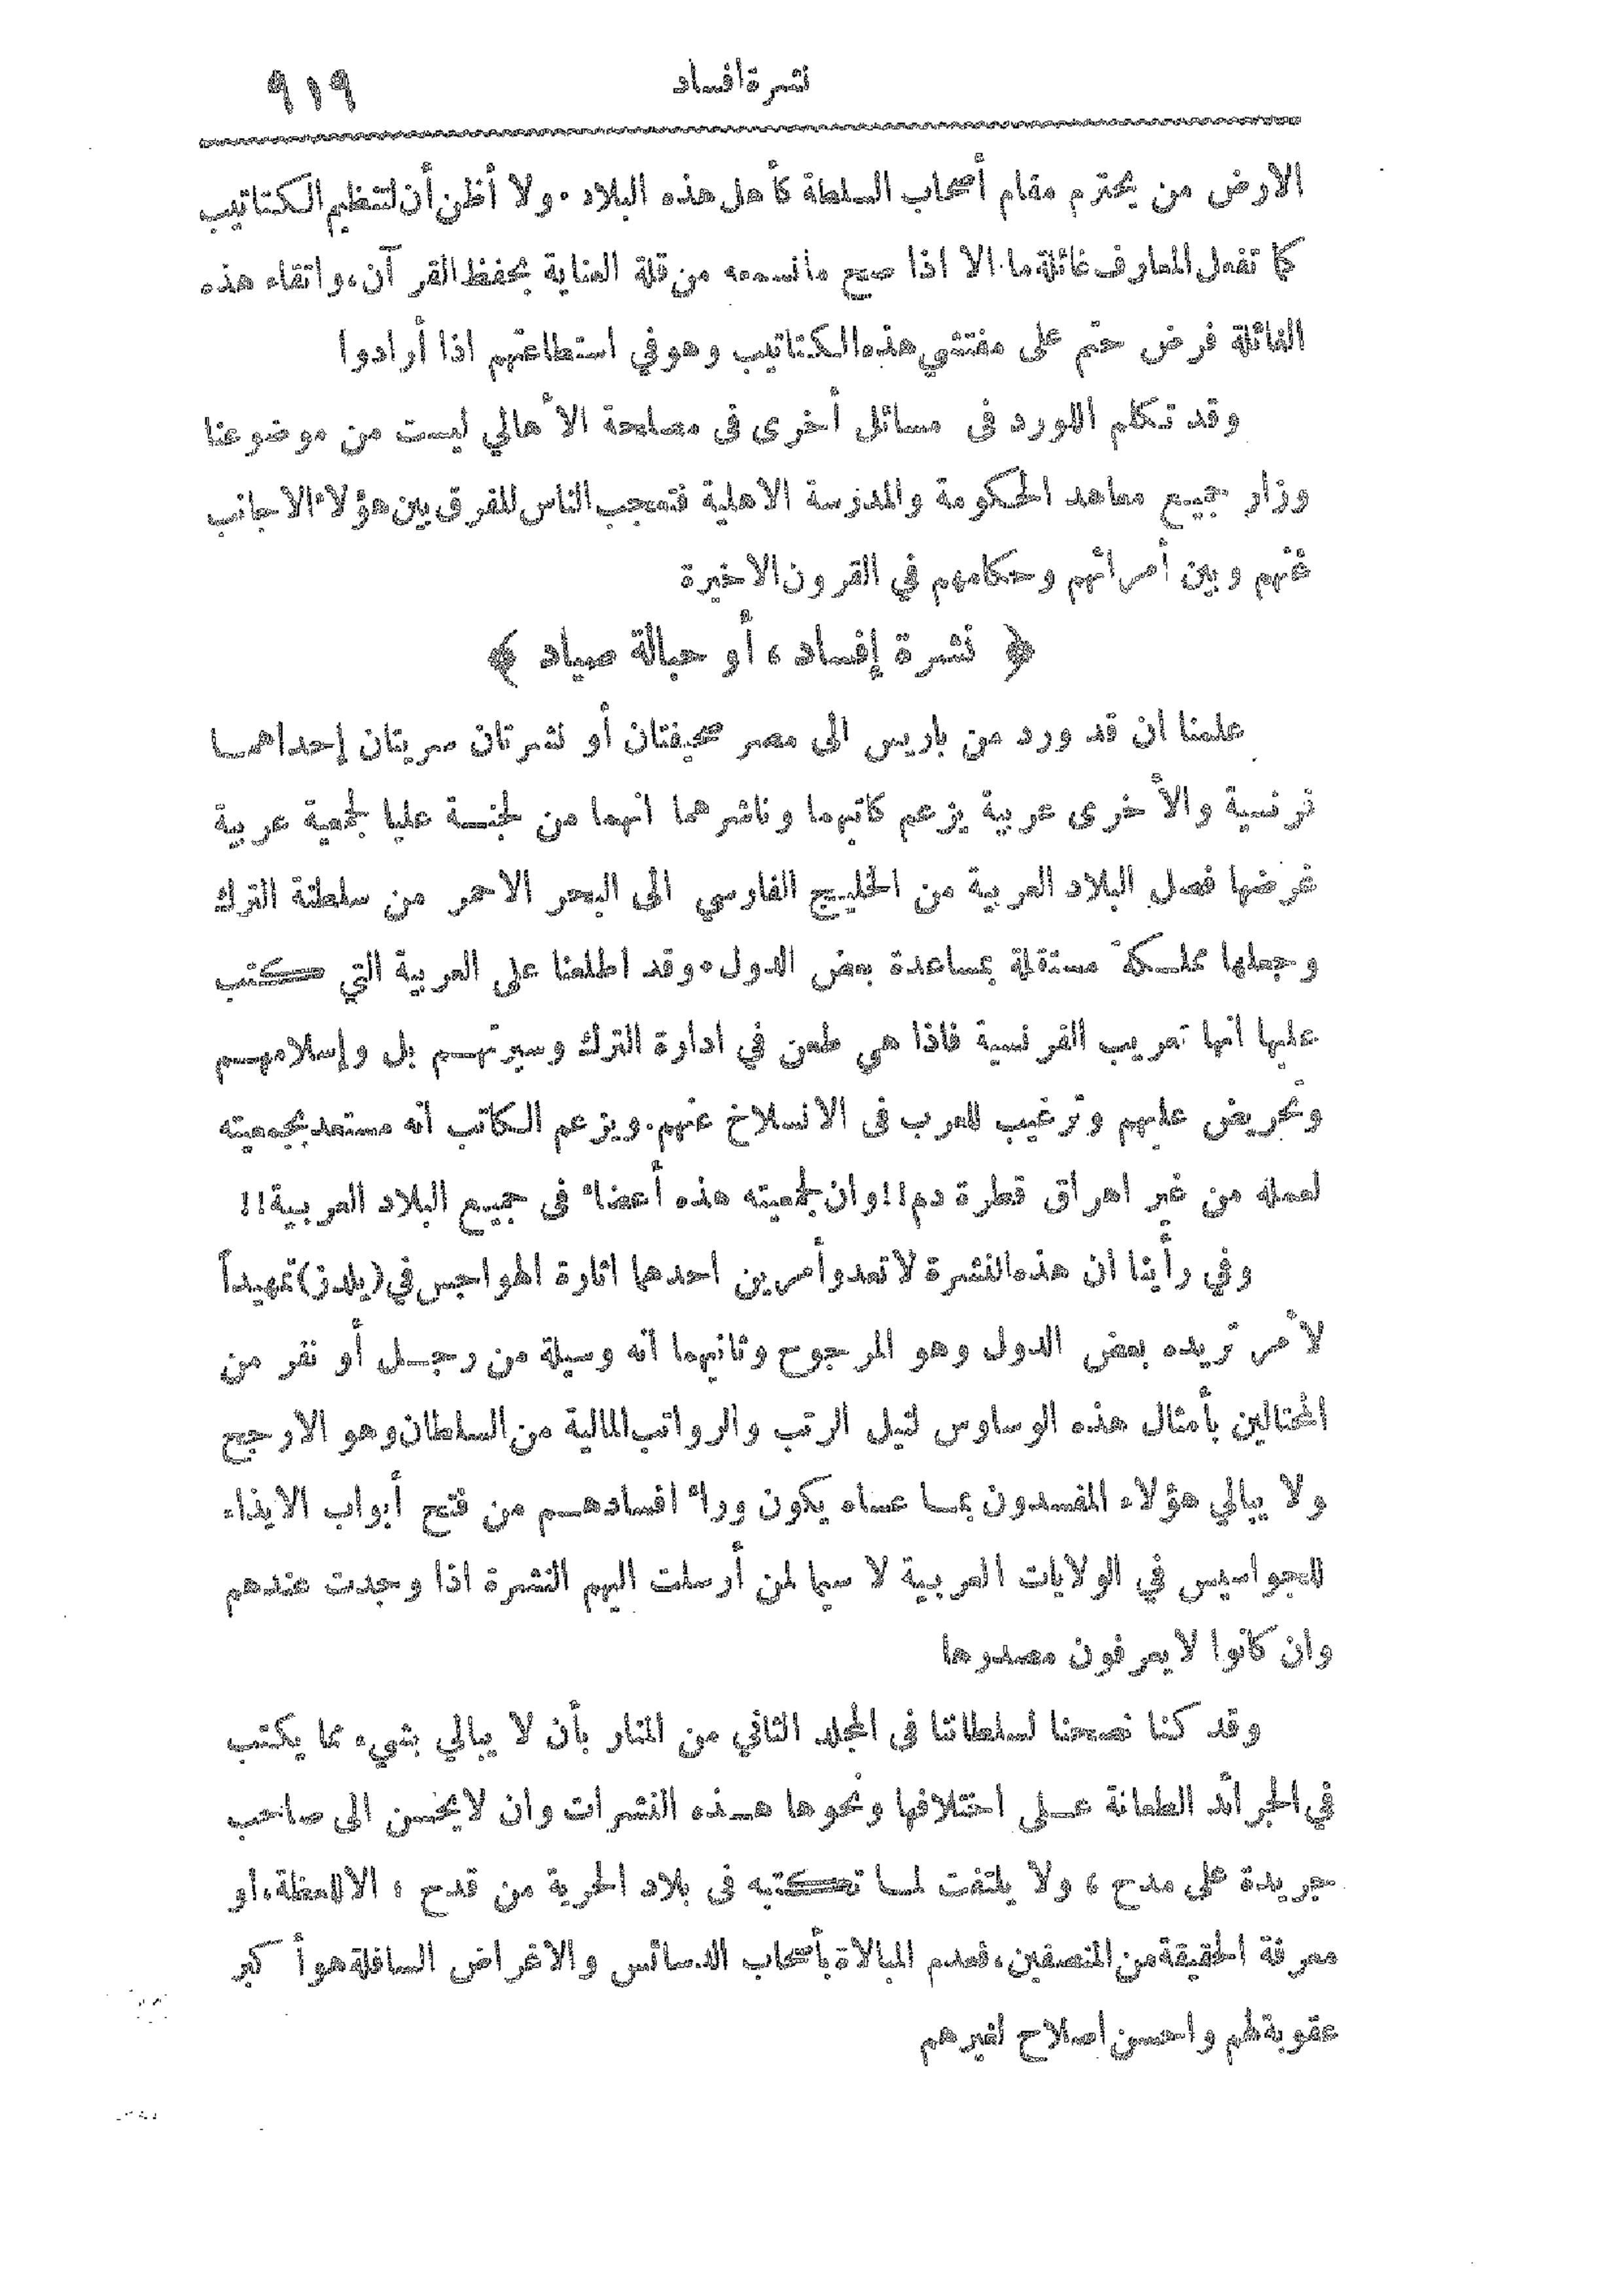 نشرة افساد
٩١٩
الارض من يحترم مقام أصحاب السلطة كأهل هذه البلاد . ولا أظن أن لتنظيم الكتاتيب
كما تفعل المعارف غائلة ما . الا اذا صح ما نسمعه من قلة العناية بحفظ القرآن ، واتقاء هذه
الغائلة فرض حتم على مفتشي هذه الكتاتيب وهو في استطاعتهم اذا أرادوا
وقد تكلم اللورد فى مسائل أخرى فى مصلحة الأهالي ليست من موضوعنا
وزار جميع معاهد الحكومة والمدرسة الاهلية فتعجب الناس للفرق بين هؤلاء الاجانب
عنهم وبين أمرائهم وحكامهم في القرون الاخيرة
﴿ نشرة إفساد ، أو حبالة صياد ﴾
علمنا ان قد ورد من باريس الى مصر صحيفتان أو نشرتان سريتان إحداهما
فرنسية والأخرى عربية يزعم كاتبهما وناشرهما انهما من لجنة عليا لجمعية عربية
غرضها فصل البلاد العربية من الخليج الفارسي الى البحر الاحمر من سلطنة الترك
وجعلها مملكة مستقلة بمساعدة بعض الدول . وقد اطلعنا على العربية التي كتب
عليها انها تعريب الفرنسية فاذا هي طعن في ادارة الترك وسيرتهم بل وإسلامهم
وتحريض عليهم وترغيب للعرب فى الانسلاخ عنهم . ويزعم الكاتب انه مستعد بجمعيته
لعمله من غير اهراق قطرة دم !! وان لجمعيته هذه أعضاء فى جميع البلاد العربية !!
وفي رأينا ان هذه النشرة لا تعدو أمرين احدها اثارة الهواجس في (يلدز) تمهيداً
لأمر تريده بعض الدول وهو المرجوح وثانيهما انه وسيلة من رجل أو نفر من
المحتالين بأمثال هذه الوساوس لنيل الرتب والرواتب المالية من السلطان وهو الارجح
ولا يبالي هؤلاء المفسدون بما عساه يكون وراء افسادهم من فتح أبواب الايذاء
للجواسيس في الولايات العربية لا سيما لمن أرسلت اليهم النشرة اذا وجدت عندهم
وان كانوا لا يعرفون مصدرها
وقد كنا نصحنا لسلطاننا فى المجلد الثاني من المنار بأن لا يبالي بشيء مما يكتب
في الجرائد الطعانة على اختلافها ونحوها هذه النشرات وان لا يحسن الى صاحب
جريدة على مدح ، ولا يلتفت لما تكتبه فى بلاد الحرية من قدح ، الا للعظة ، او
معرفة الحقيقة من المنصفين ، فعدم المبالاة بأصحاب الدسائس والاغراض السافلة هو أكبر
عقوبة لهم واحسن اصلاح لغيرهم